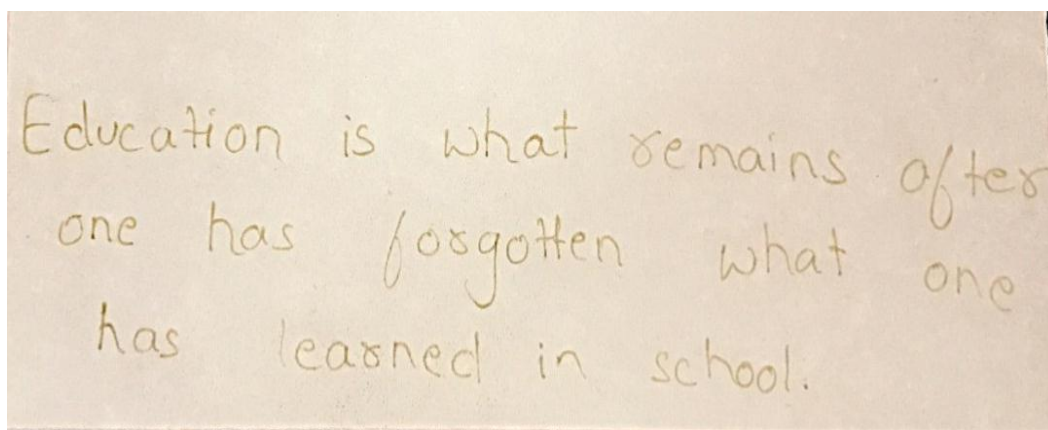 Education is what remains after
one has forgotten what one
has learned in school.